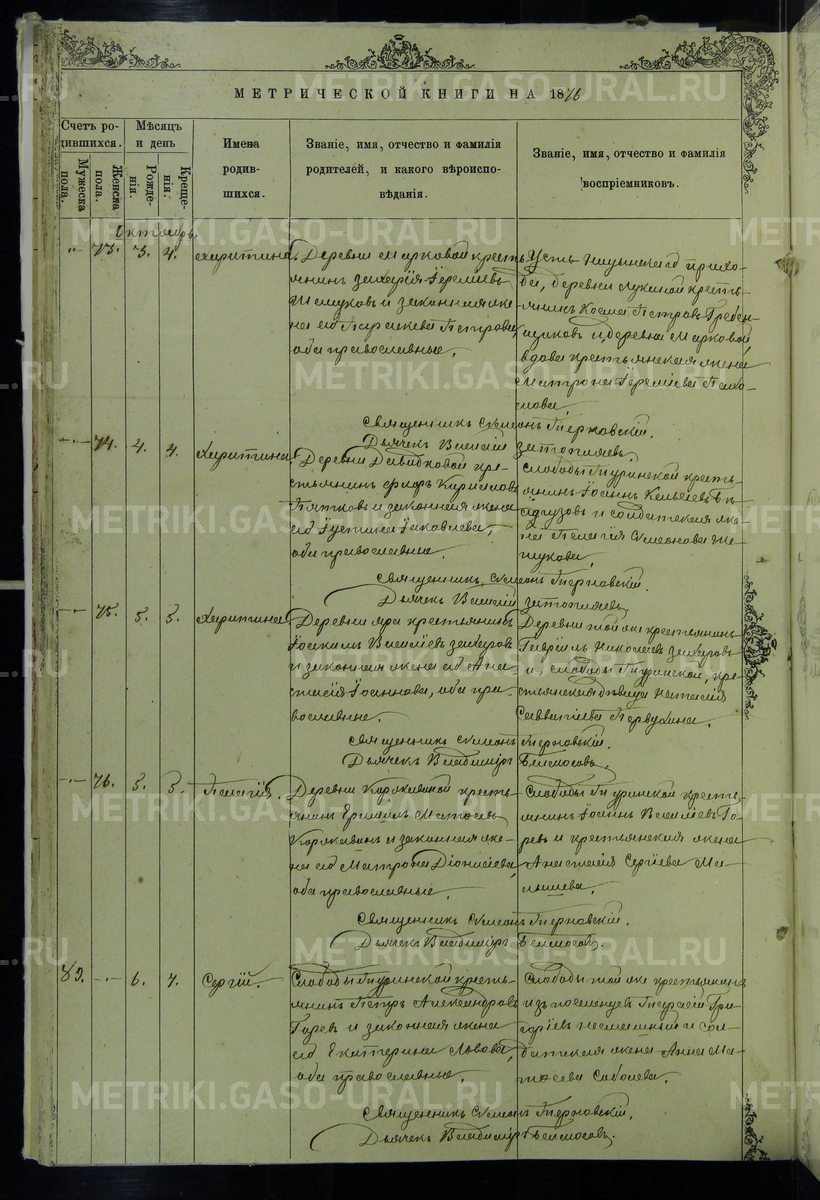 МЕТРИЧЕСКОЙ КНИГИ НА 1876
Счетъ родившихся.
Мужеска пола.
Женска пола.
Мѣсяцъ и день
Рожденія.
Крещенія.
Имена родившихся.
Званіе, имя, отчество и фамилія
родителей, и какого вѣроиспо-
вѣданія.
Званіе, имя, отчество и фамилія
воспріемниковъ.
Октябрь
73. 3. 4. Харитина.
Деревни Марковой кресть-
янинъ Захарія Іереміевъ
и законная же-
на его Параскева Петрова,
оба православные.
прихо-
да, деревни Лукиной кресть-
янинъ Косма Петровъ Гребен-
щиковъ и деревни Марковой
вдова крестьянская жена
Матрона Іереміева
Священникъ Симеонъ Терновскій.
Дьячекъ Василій Затопляевъ.
74. 4. 4. Харитина.
Деревни Давыдковой кре-
стьянинъ Флоръ Кириловъ
Пятковъ и законная жена
его Іустина Іаковлева,
оба православные.
Слободы Туринской кресть-
янинъ Іоаннъ
и солдатская же-
на Пелагія Симеонова
Священникъ Симеонъ Терновскій.
Дьячекъ Василій Затопляевъ.
75. 5. 5. Харитина
Деревни Яра крестьянинъ
Іоакимъ Василіевъ Захаровъ
и законная жена его Ана-
стасія Іоаннова, оба пра-
вославные.
Деревни той же крестьянинъ
Гавріилъ Николаевъ Захаровъ
и, слободы Туринской, кре-
стьянская дѣвица Наталія
Савватіева Первухина.
Священникъ Симеонъ Терновскій.
Дьячекъ Владиміръ Бѣлоносовъ.
76. 5. 5. Пелагія.
Деревни Корякиной кресть-
янинъ Ермилъ Матѳеевъ
Корякинъ и законная же-
на его Матрона Діонисіева
оба православные.
Слободы Туринской кресть-
янинъ Іоаннъ Василіевъ Го-
ревъ и крестьянская жена
Анастасія Сергіева Ма-
лышева.
Священникъ Симеонъ Терновскій.
Дьячекъ Владиміръ Бѣлоносовъ.
6. 7. Сергій.
Слободы Туринской кресть-
янинъ Петръ Александровъ
Горевъ и законная жена
его Екатерина Львова,
оба православные.
Слободы той же крестьянинъ
изъ поселенцевъ Гри-
горіевъ и сол-
датская жена Анна Ма-
тѳеева Соболева.
Священникъ Симеонъ Терновскій.
Дьячекъ Владиміръ Бѣлоносовъ.
METRIKI.GASO-URAL.RU